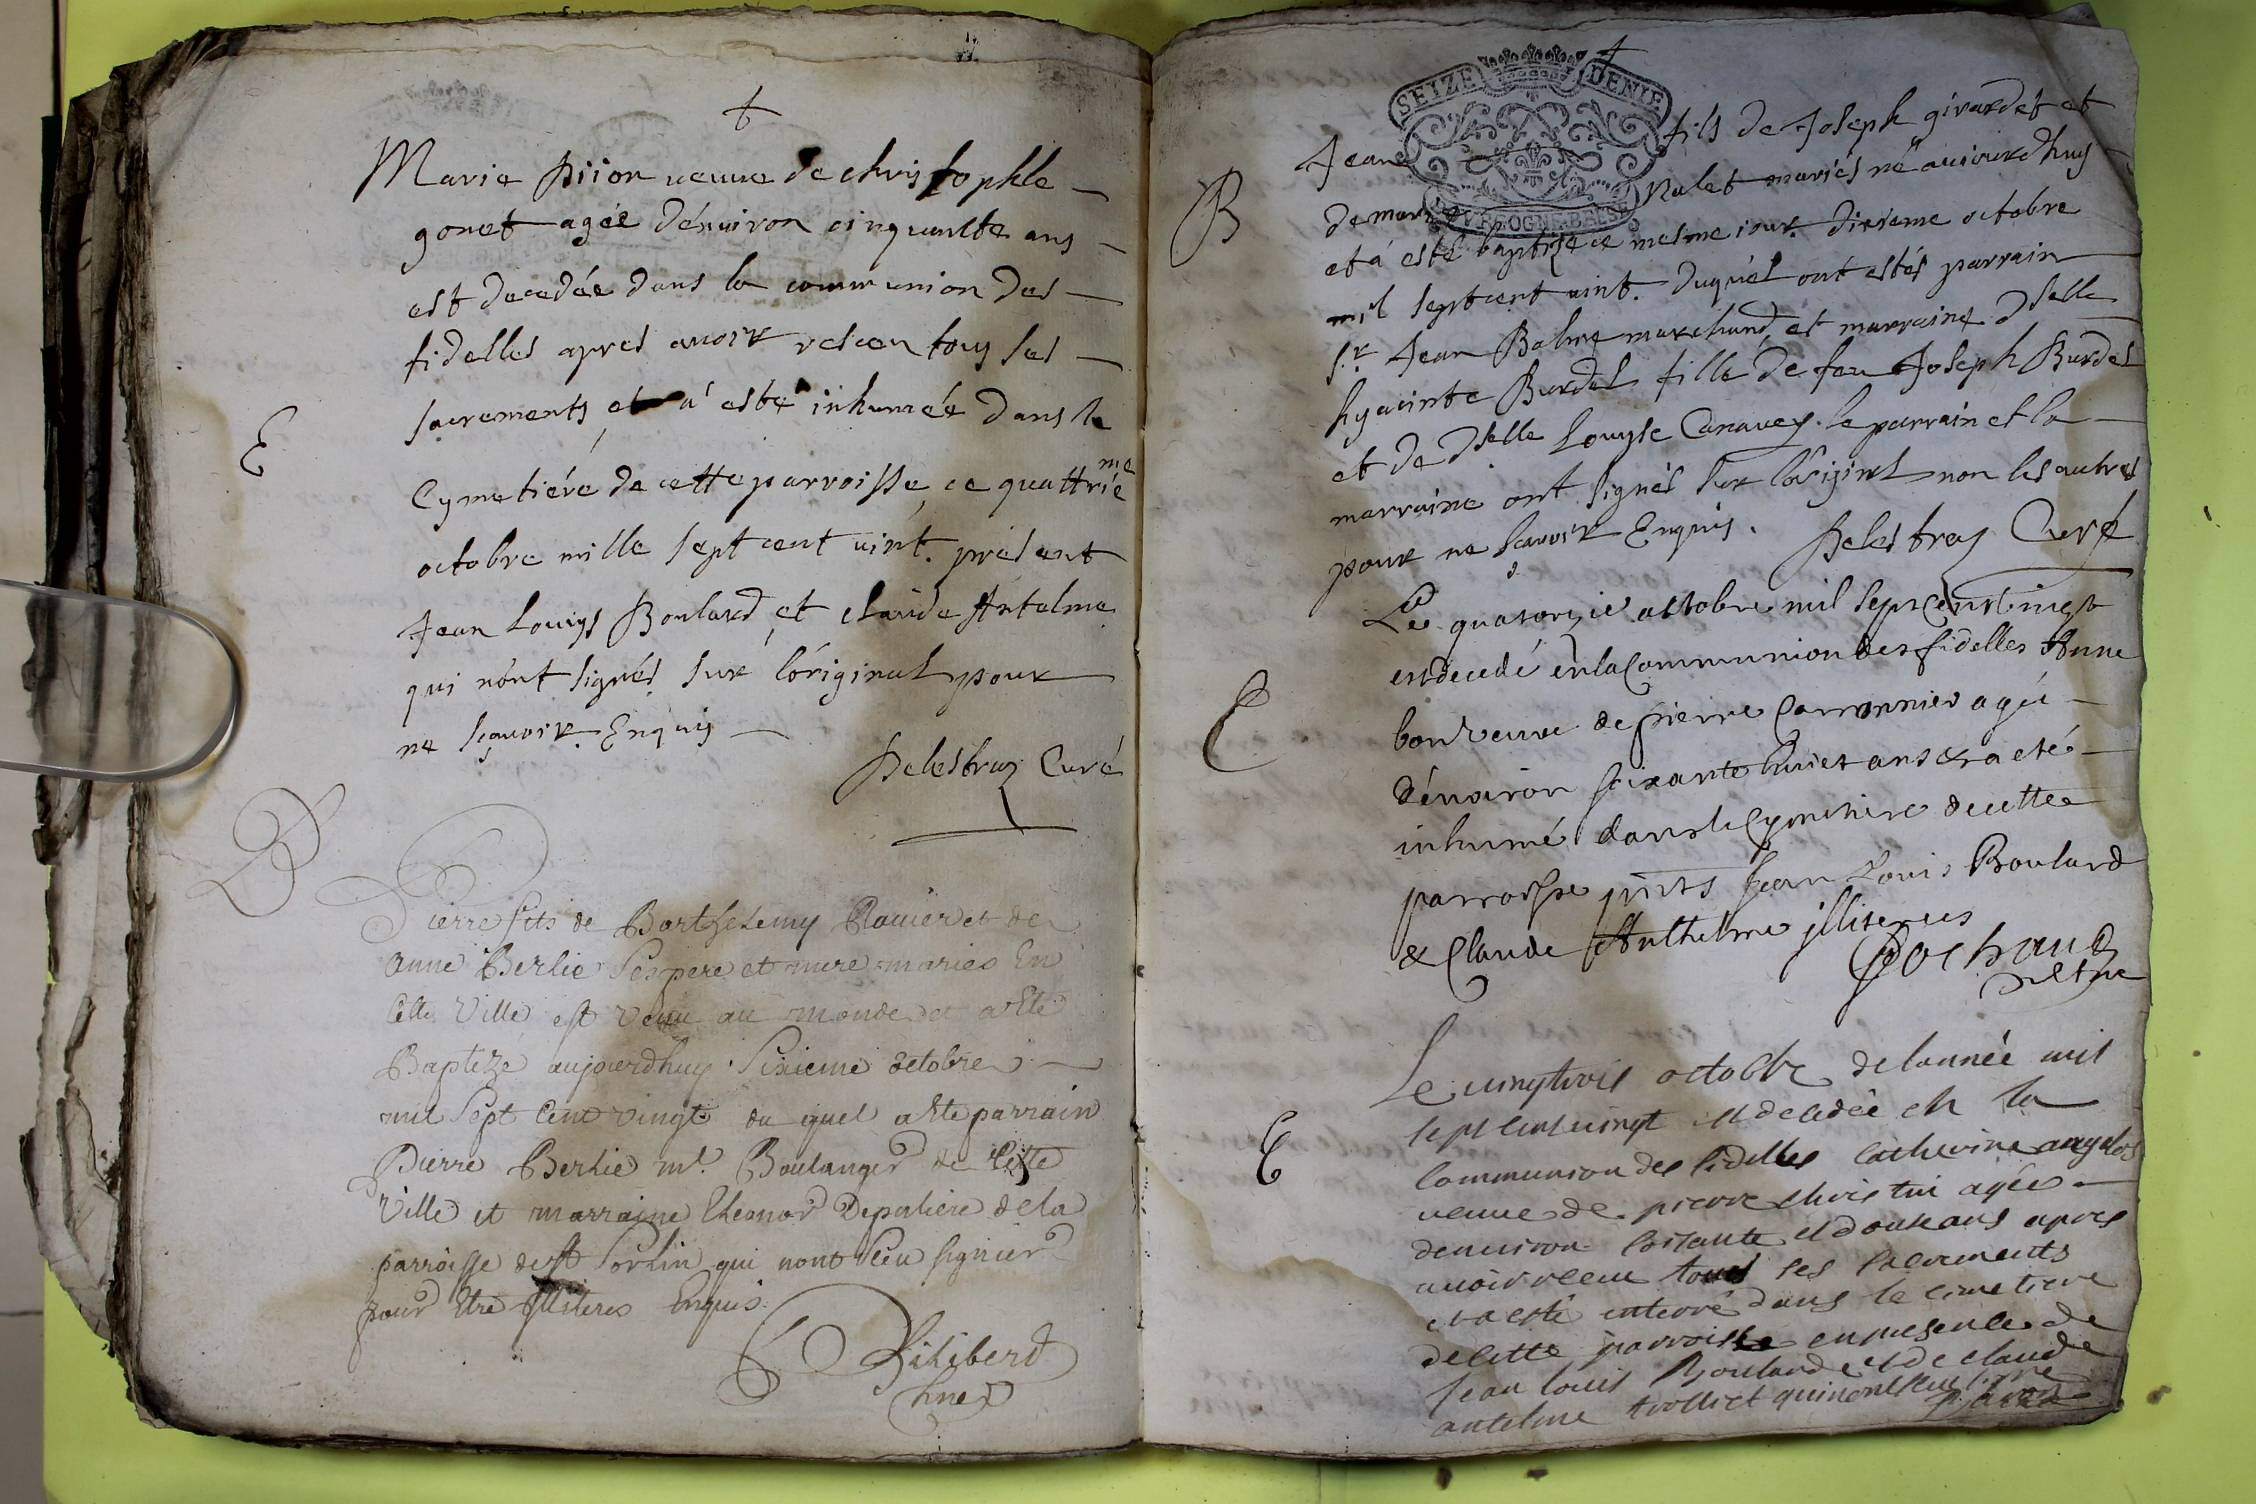 †
Marie Piion veuve de christophle
gonet agée d'énviron cinquante ans
est decedée dans la communion des
fidelles apres avoir resceu tous ses
sacrements et a' esté inhumée dans le
Cymetiére de cette parroisse, ce quattrie
me
E
octobre mille sept cent vint. présent
Jean Louys Boulard, et claude Antelme
qui n'ont signés sur l'original pour
ne sçavoir. Enquis
Delestraz Curé
B
Pierre fils de Barthelemy Ravier et de
Anne Berlie Ses pere et mere maries En
Cette Ville est Venu au monde et a esté
Baptizé aujourdhuy Sixieme octobre
mil Sept Cent vingt du quel a esté parrain
Pierre Berlie mr. Boulanger de Cette
Ville et marraine Eleonor Depaliere de la
parroisse de st Sorlin qui nont sceu signier
pour Etre Illiteres Enquis
Philiberd
†
SEIZE DENIE
BOVRGOGNE BRESSE
Jean fils de Joseph girardet et
B
de marie Nalet mariés né aujourdhuy
et a' esté baptizé ce mesme iour. dixieme octobre
mil sept cent vint. duquel ont estés parrain
Sr. Jean Balme marchand, et marraine Dselle
hyacinte Burdel fille de feu Joseph Burdel
et de Dselle Louyse Canavey. le parrain et la
marraine ont signés sur l'original non les autres
pour ne sçavoir Enquis. Delestraz Curé
Le quatorzie octobre mil sept Cent vingt
est decedé en la Communion des fidelles Anne
E
bon veuve de pierre Carronnier agée
d'énviron soixante huict ans & a eté
inhumé dans le Cymetiere de cette
parroisse pnts Jean Louis Boulard
& Claude Anthelme illiteres
Cochaud
Le vingtrois octobre de lannée mil
sept cent vingt est decedée en la
E
communion des fidelles catherine
veuve de pierre christin agée
denuiron soisante et douse ans apres
auoir receu tous ses sacrements
et a esté enterré dans le cimetiere
de cette parroisse en presence de
Jean louis Boulard et de claude
antelme trolliet qui nont sceu signe